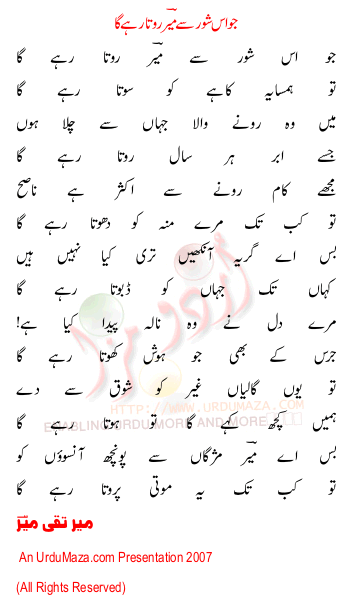 جو اس شور سے میؔر روتا رہے گا
جو اس شور سے میؔر روتا رہے گا
تو ہمسایہ کاہے کو سوتا رہے گا
میں وہ رونے والا جہاں سے چلا ہوں
جسے ابر ہر سال روتا رہے گا
مجھے کام رونے سے اکثر ہے ناصح
تو کب تک مرے منہ کو دھوتا رہے گا
بس اے گریہ آنکھیں تری کیا نہیں ہیں
کہاں تک جہاں کو ڈبوتا رہے گا
مرے دل نے وہ نالہ پیدا کیا ہے!
جرس کے بھی جو ہوش کھوتا رہے گا
تو یوں گالیاں غیر کو شوق سے دے
ہمیں کچھ کہے گا تو ہوتا رہے گا
بس اے میؔر مژگاں سے پونچھ آنسوؤں کو
تو کب تک یہ موتی پروتا رہے گا
میر تقی میؔر
An UrduMaza.com Presentation 2007
(All Rights Reserved)
اردو مزا
HTTP://WWW.URDUMAZA.COM
ENABLING URDU MORE AND MORE